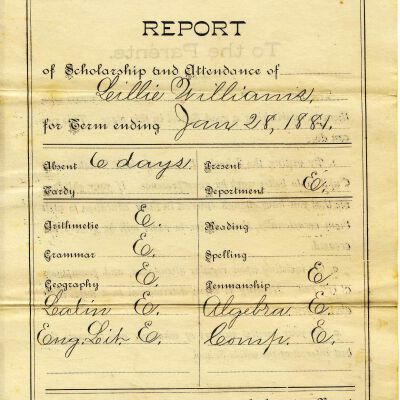 REPORT
of Scholarship and Attendance of
Lillie Williams.
for Term ending Jan 28, 1881.
Absent 6 days. Present
Tardy Deportment E.
Arithmetic E. Reading
Grammar E. Spelling
Geography E. Penmanship E.
Latin E. Algebra E.
Eng. Lit. E. Comp. E.